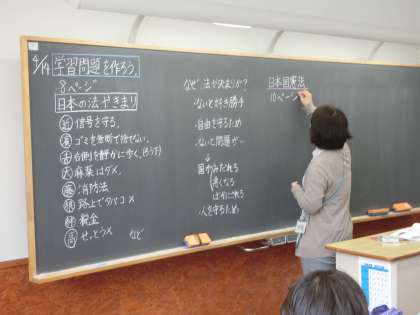 4/14
学習問題を作ろう。
8ページ
日本の法やきまり
信号を守る。
ゴミを無断で捨てない。
右側を静かに歩く。(ろう下)
麻薬はダメ。
消防法
路上でタバコ×
税金
高 せっとう× など
なぜ、法や決まりが?
・ないと好き勝手
・自由を守るため
・ないと問題が…
国がみだれる
悪くなる
・人を守るため
日本国憲法
10ページ